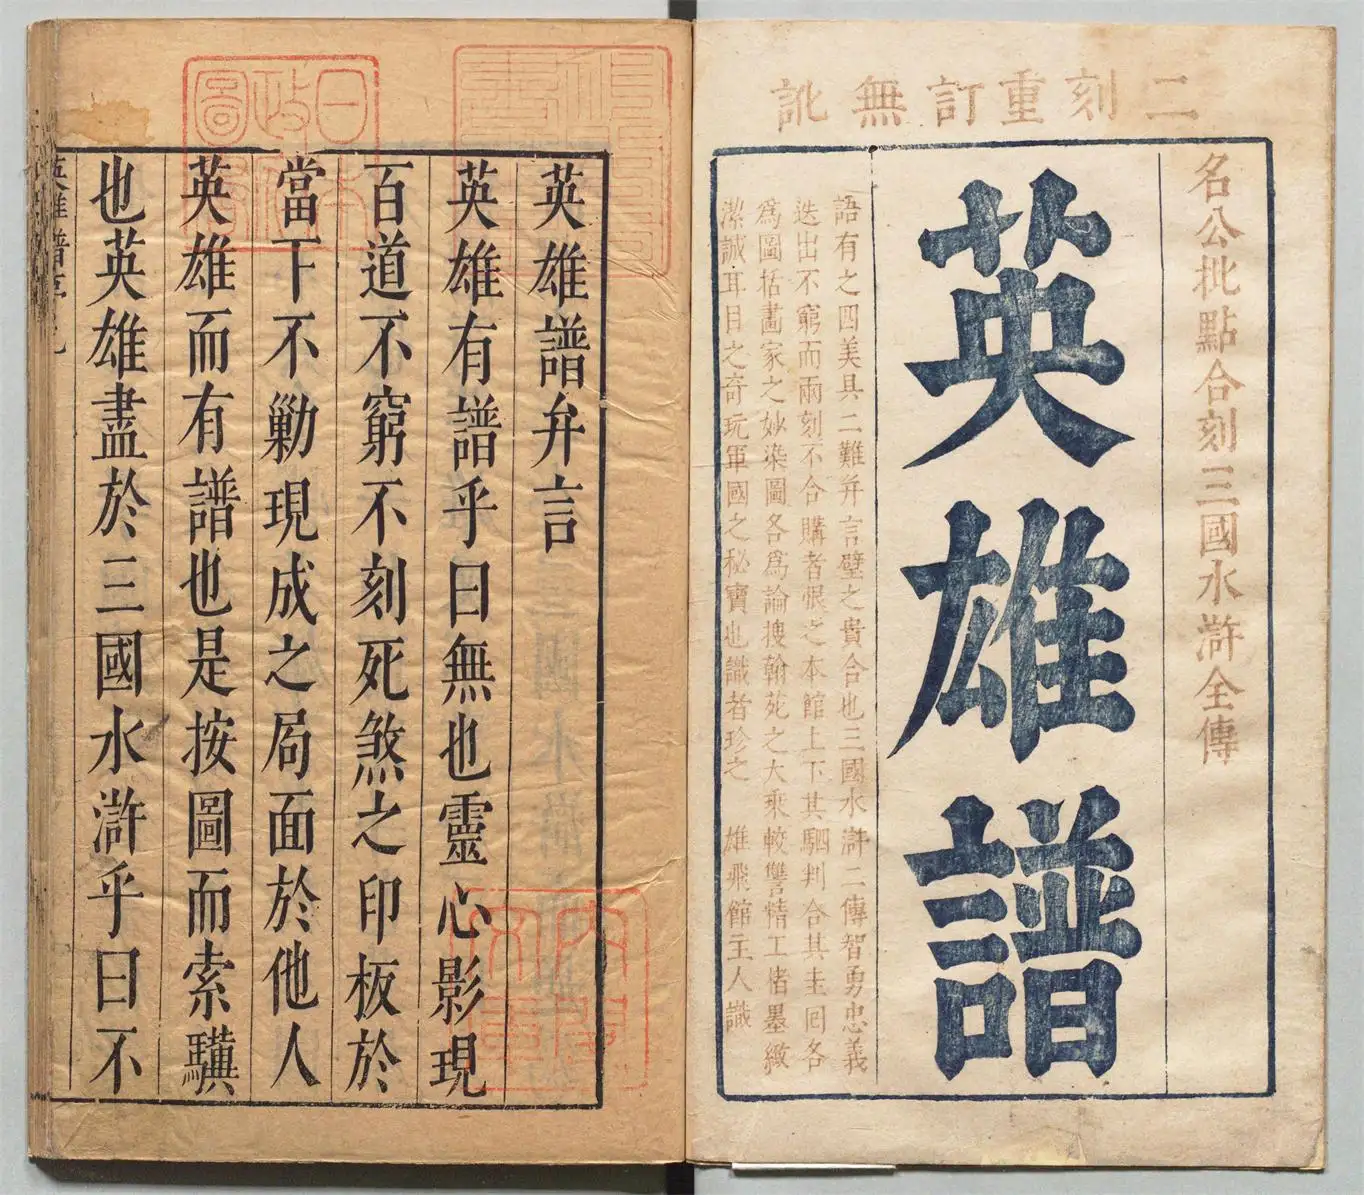 二刻重訂無訛
名公批點合刻三國水滸全傳
英雄譜
語有之四美具二難并言璧之貴合也三國水滸二傳智勇忠義
迭出不窮而兩刻不合購者恨之本館上下其駟判合其圭回各
為圖括畫家之妙染圖各為論搜翰苑之大乘較讐精工楮墨緻
潔誠耳目之奇玩軍國之秘寶也識者珍之 雄飛館主人識
英雄譜弁言
英雄有譜乎曰無也靈心影現
百道不窮不刻死煞之印板於
當下不勦現成之局面於他人
英雄而有譜也是按圖而索驥
也英雄盡於三國水滸乎曰不
英雄譜
日本政府圖書
內閣文庫